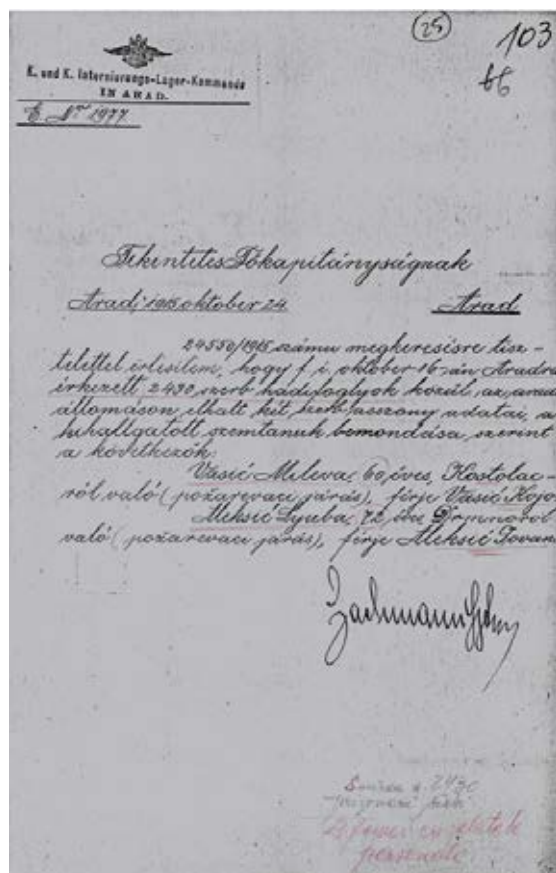 25
103
66
K. und K. Internierungs-Lager-Kommando
IN ARAD.
E. Nr 1977
Tekintetes Főkapitányságnak
Arad, 1915 oktober 24. Arad
24550/1915 számu megkeresésre tisz-
telettel értesitem, hogy f. é. oktober 16-án Aradra
érkezett 2430 szerb hadifoglyok közül az aradi
állomáson elhalt két szerb asszony adatai, a
kihallgatott szemtanuk bemondása szerint
a következők:
Vasić Mileva, 60 éves, Kostolac-
ról való (požarevaci járás), férje Vasić Kojo
Aleksić Lyuba, 72 éves Drmnoról
való (požarevaci járás), férje Aleksić Jovan
2430
2 femei
personale